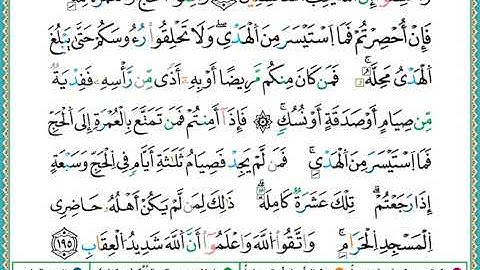 فَإِنْ أُحْصِرْتُمْ فَمَا اَسْتَيْسَرَ مِنَ اَلْهَدْيِ وَلَا تَحْلِقُوا رُءُوسَكُمْ حَتَّىٰ يَبْلُغَ
اَلْهَدْيُ مَحِلَّهُ فَمَن كَانَ مِنكُم مَّرِيضًا أَوْ بِهِ أَذًى مِّن رَّأْسِهِ فَفِدْيَةٌ
مِّن صِيَامٍ أَوْ صَدَقَةٍ أَوْ نُسُكٍ فَإِذَا أَمِنتُمْ فَمَن تَمَتَّعَ بِالْعُمْرَةِ إِلَى اَلْحَجِّ
فَمَا اَسْتَيْسَرَ مِنَ اَلْهَدْيِ فَمَن لَّمْ يَجِدْ فَصِيَامُ ثَلَٰثَةِ أَيَّامٍ فِي اِلْحَجِّ وَسَبْعَةٍ
إِذَا رَجَعْتُمْ تِلْكَ عَشَرَةٌ كَامِلَةٌ ذَٰلِكَ لِمَن لَّمْ يَكُنْ أَهْلُهُ حَاضِرِي
اِلْمَسْجِدِ اِلْحَرَامِ وَاتَّقُوا اللَّهَ وَاعْلَمُوا أَنَّ اَللَّهَ شَدِيدُ اُلْعِقَابِ ١٩٥